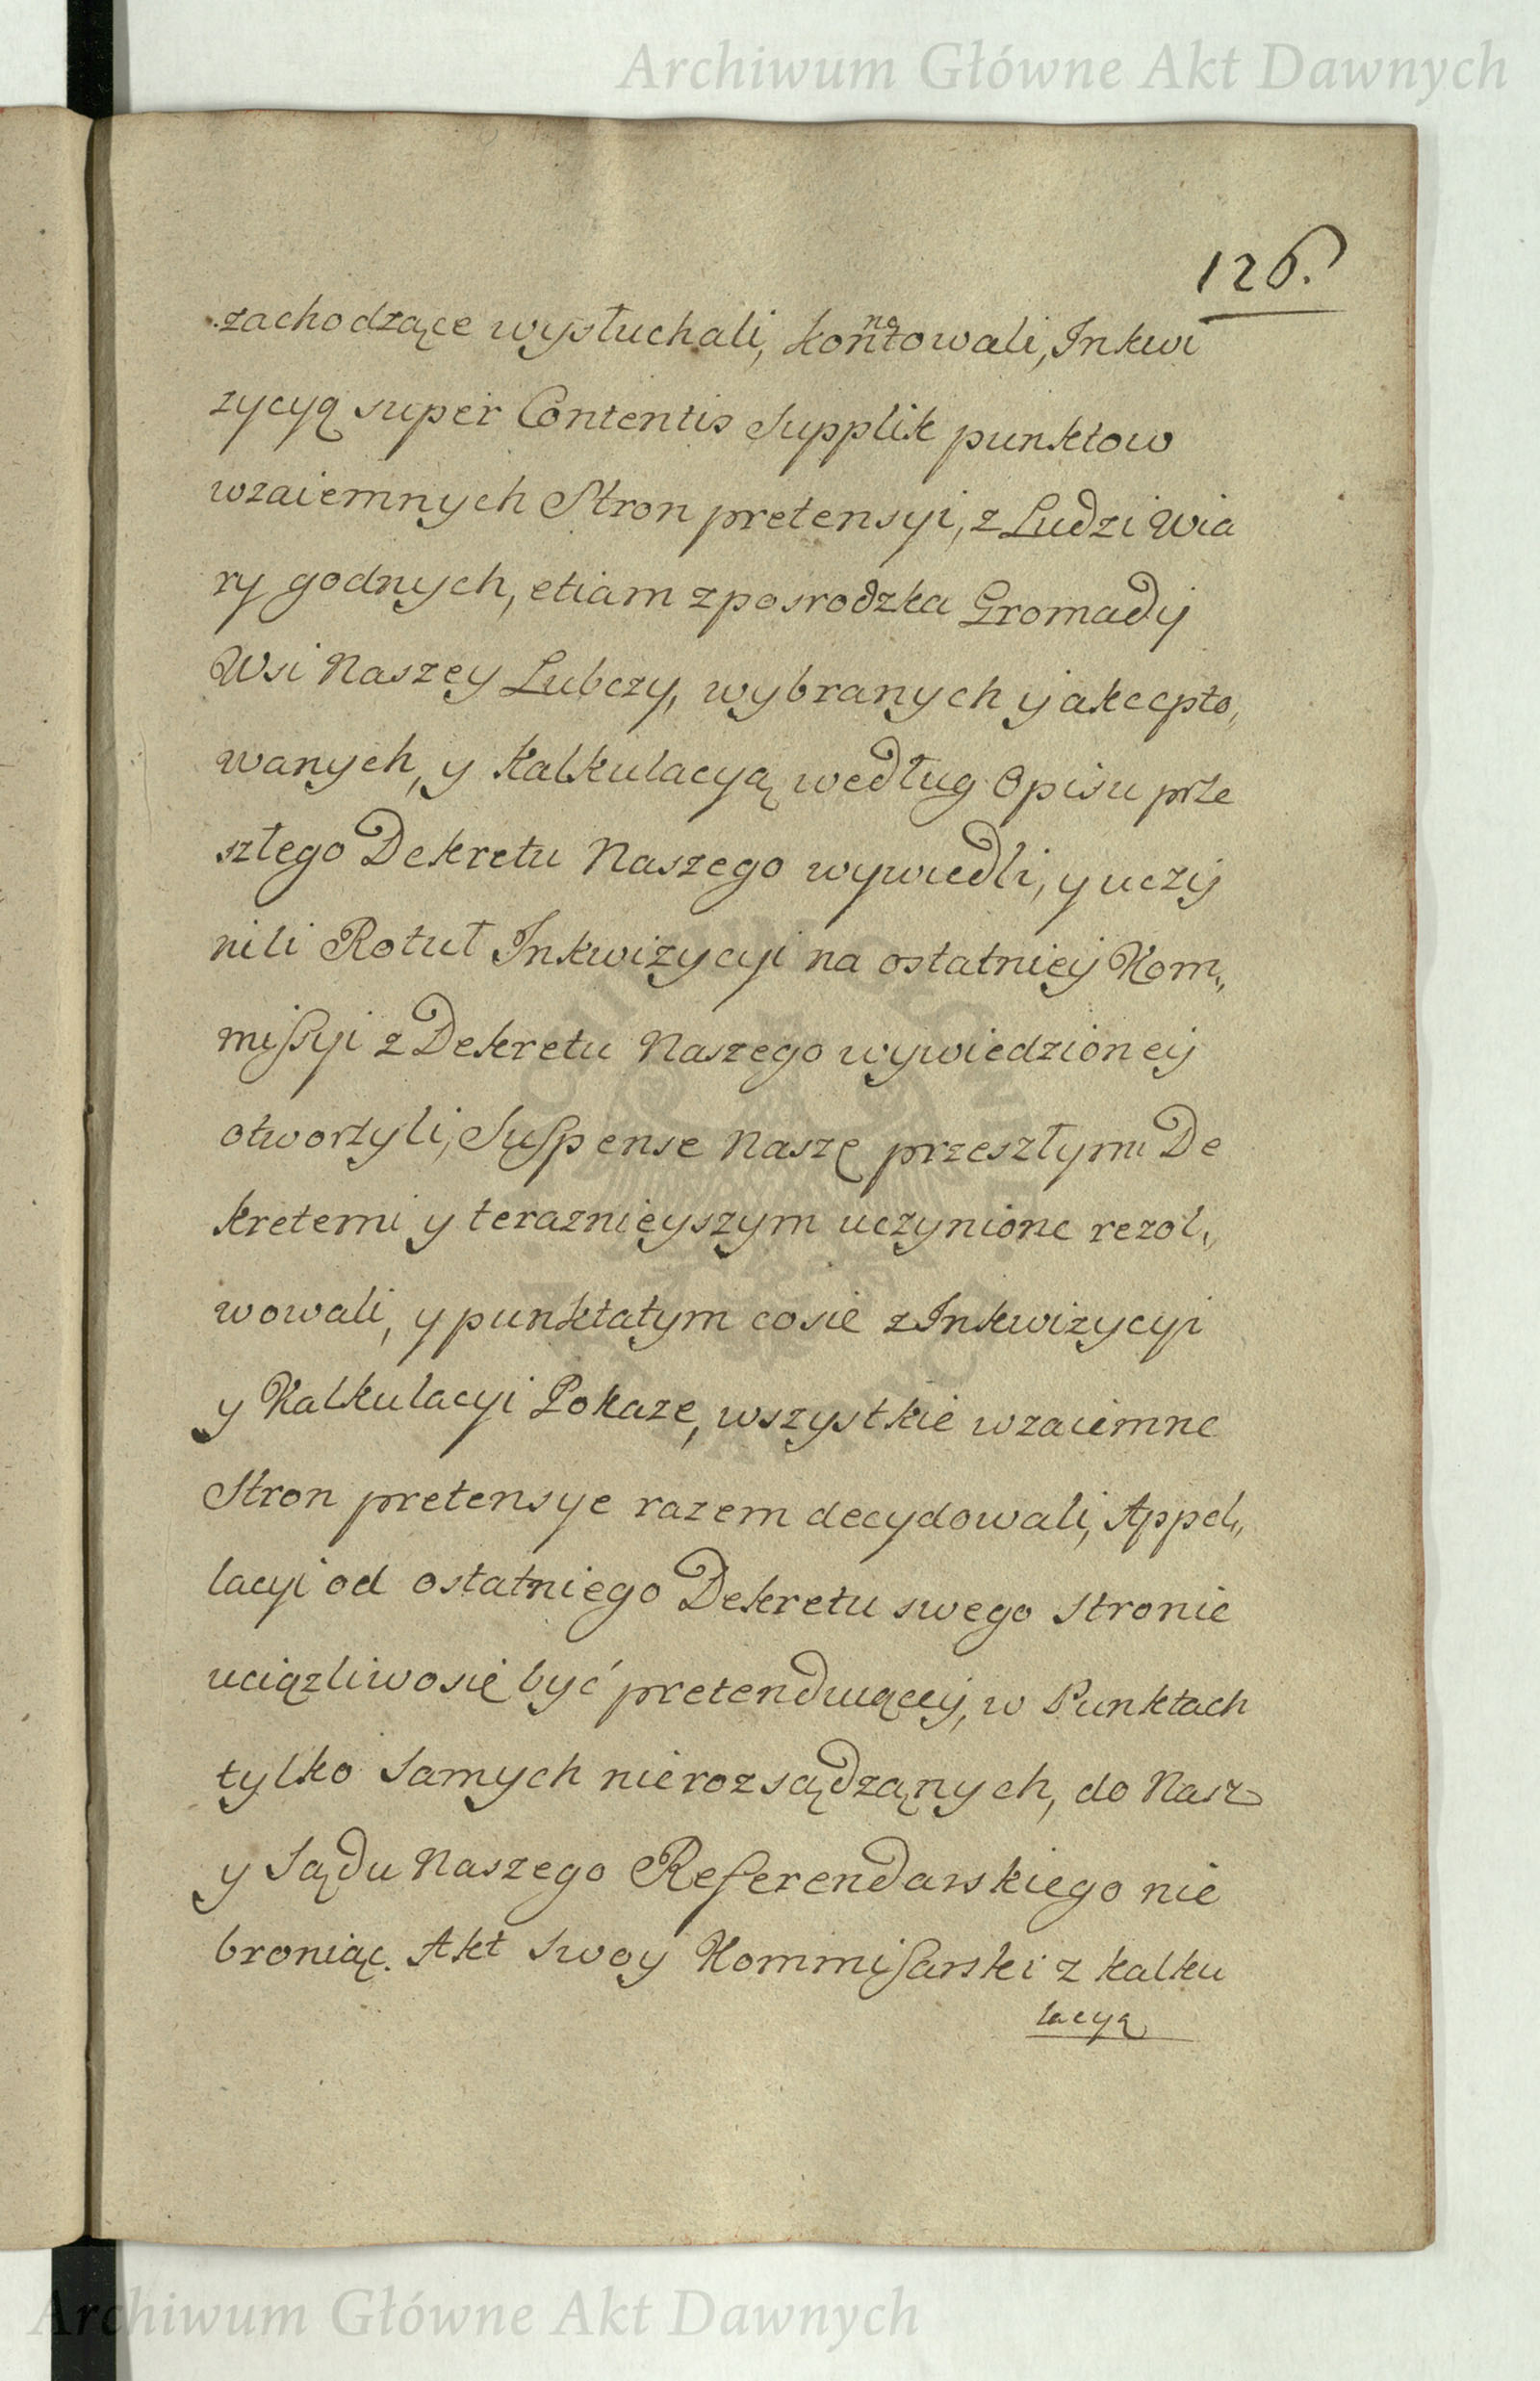 Archiwum Główne Akt Dawnych
126.
zachodzące wysłuchali, konnotowali, Inkwi
zycyą super Contentis Supplik punktow
wzaiemnych Stron pretensyi, z Ludzi Wia
ry godnych, etiam zposrodzka Gromady
Wsi Naszey Lubczy, wybranych y akcepto,
wanych, y kalkulacyą według Opisu prze
szłego Dekretu Naszego wywiedli, y uczy
nili Rotuł Inkwizycyi na ostatniey Kom„
missyi z Dekretu Naszego wywiedzioney
otworzyli, Suspense Naszę przeszłymi De
kretemi y teraznieyszym uczynione rezol„
wowali, y punktatym cosie z Inkwizycyi
y Kalkulacyi Pokaze, wszystkie wzaiemne
Stron pretensye razem decydowali, Appel„
lacyi od ostatniego Dekretu swego stronie
uciązliwosię być pretenduiącey, w Punktach
tylko samych nierozsądząnych, do Nas
y Sądu Naszego Referendarskiego nie
broniąc. Akt swoy Kommisarski z kalku
lacyą
Archiwum Główne Akt Dawnych